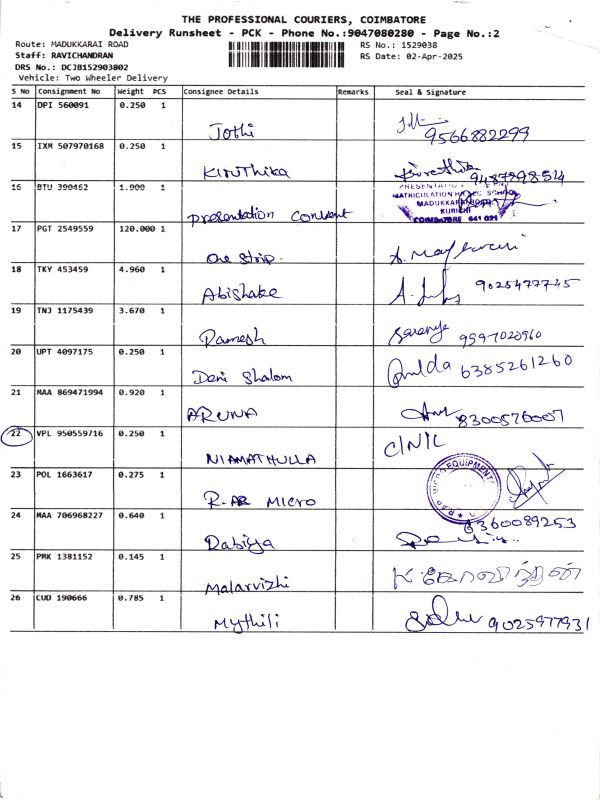 THE PROFESSIONAL COURIERS, COIMBATORE
Delivery Runsheet - PCK - Phone No.:9047080280 - Page No.:2
Route: MADUKKARAI ROAD RS No.: 1529038
Staff: RAVICHANDRAN RS Date: 02-Apr-2025
DRS No.: DCJB152903802
Vehicle: Two Wheeler Delivery
S No Consignment No Weight PCS Consignee Details Remarks Seal & Signature
14 DPI 560091 0.250 1
Jothi 9566882299
15 IXM 507970168 0.250 1
Kiruthika 9487298514
16 BTU 390462 1.900 1
Presentation Convent
MATRICULATION HR. SEC. SCHOOL
MADUKKARAI ROAD
KURICHI
COIMBATORE 641 021
17 PGT 2549559 120.000 1
One Strip.
18 TKY 453459 4.960 1
Abishake 9025477745
19 TNJ 1175439 3.670 1
Ramesh Saranya 9597020960
20 UPT 4097175 0.250 1
Deni Shalom 6385261260
21 MAA 869471994 0.920 1
ARUNA 8300576007
22 VPL 950559716 0.250 1
NIAMATHULLA
23 POL 1663617 0.275 1
R-AR MICRO
R.A.R MICRO EQUIPMENTS
24 MAA 706968227 0.640 1 6360089253
Rabiya
25 PMK 1381152 0.145 1
Malarvizhi
26 CUD 190666 0.785 1
Mythili 9025977931